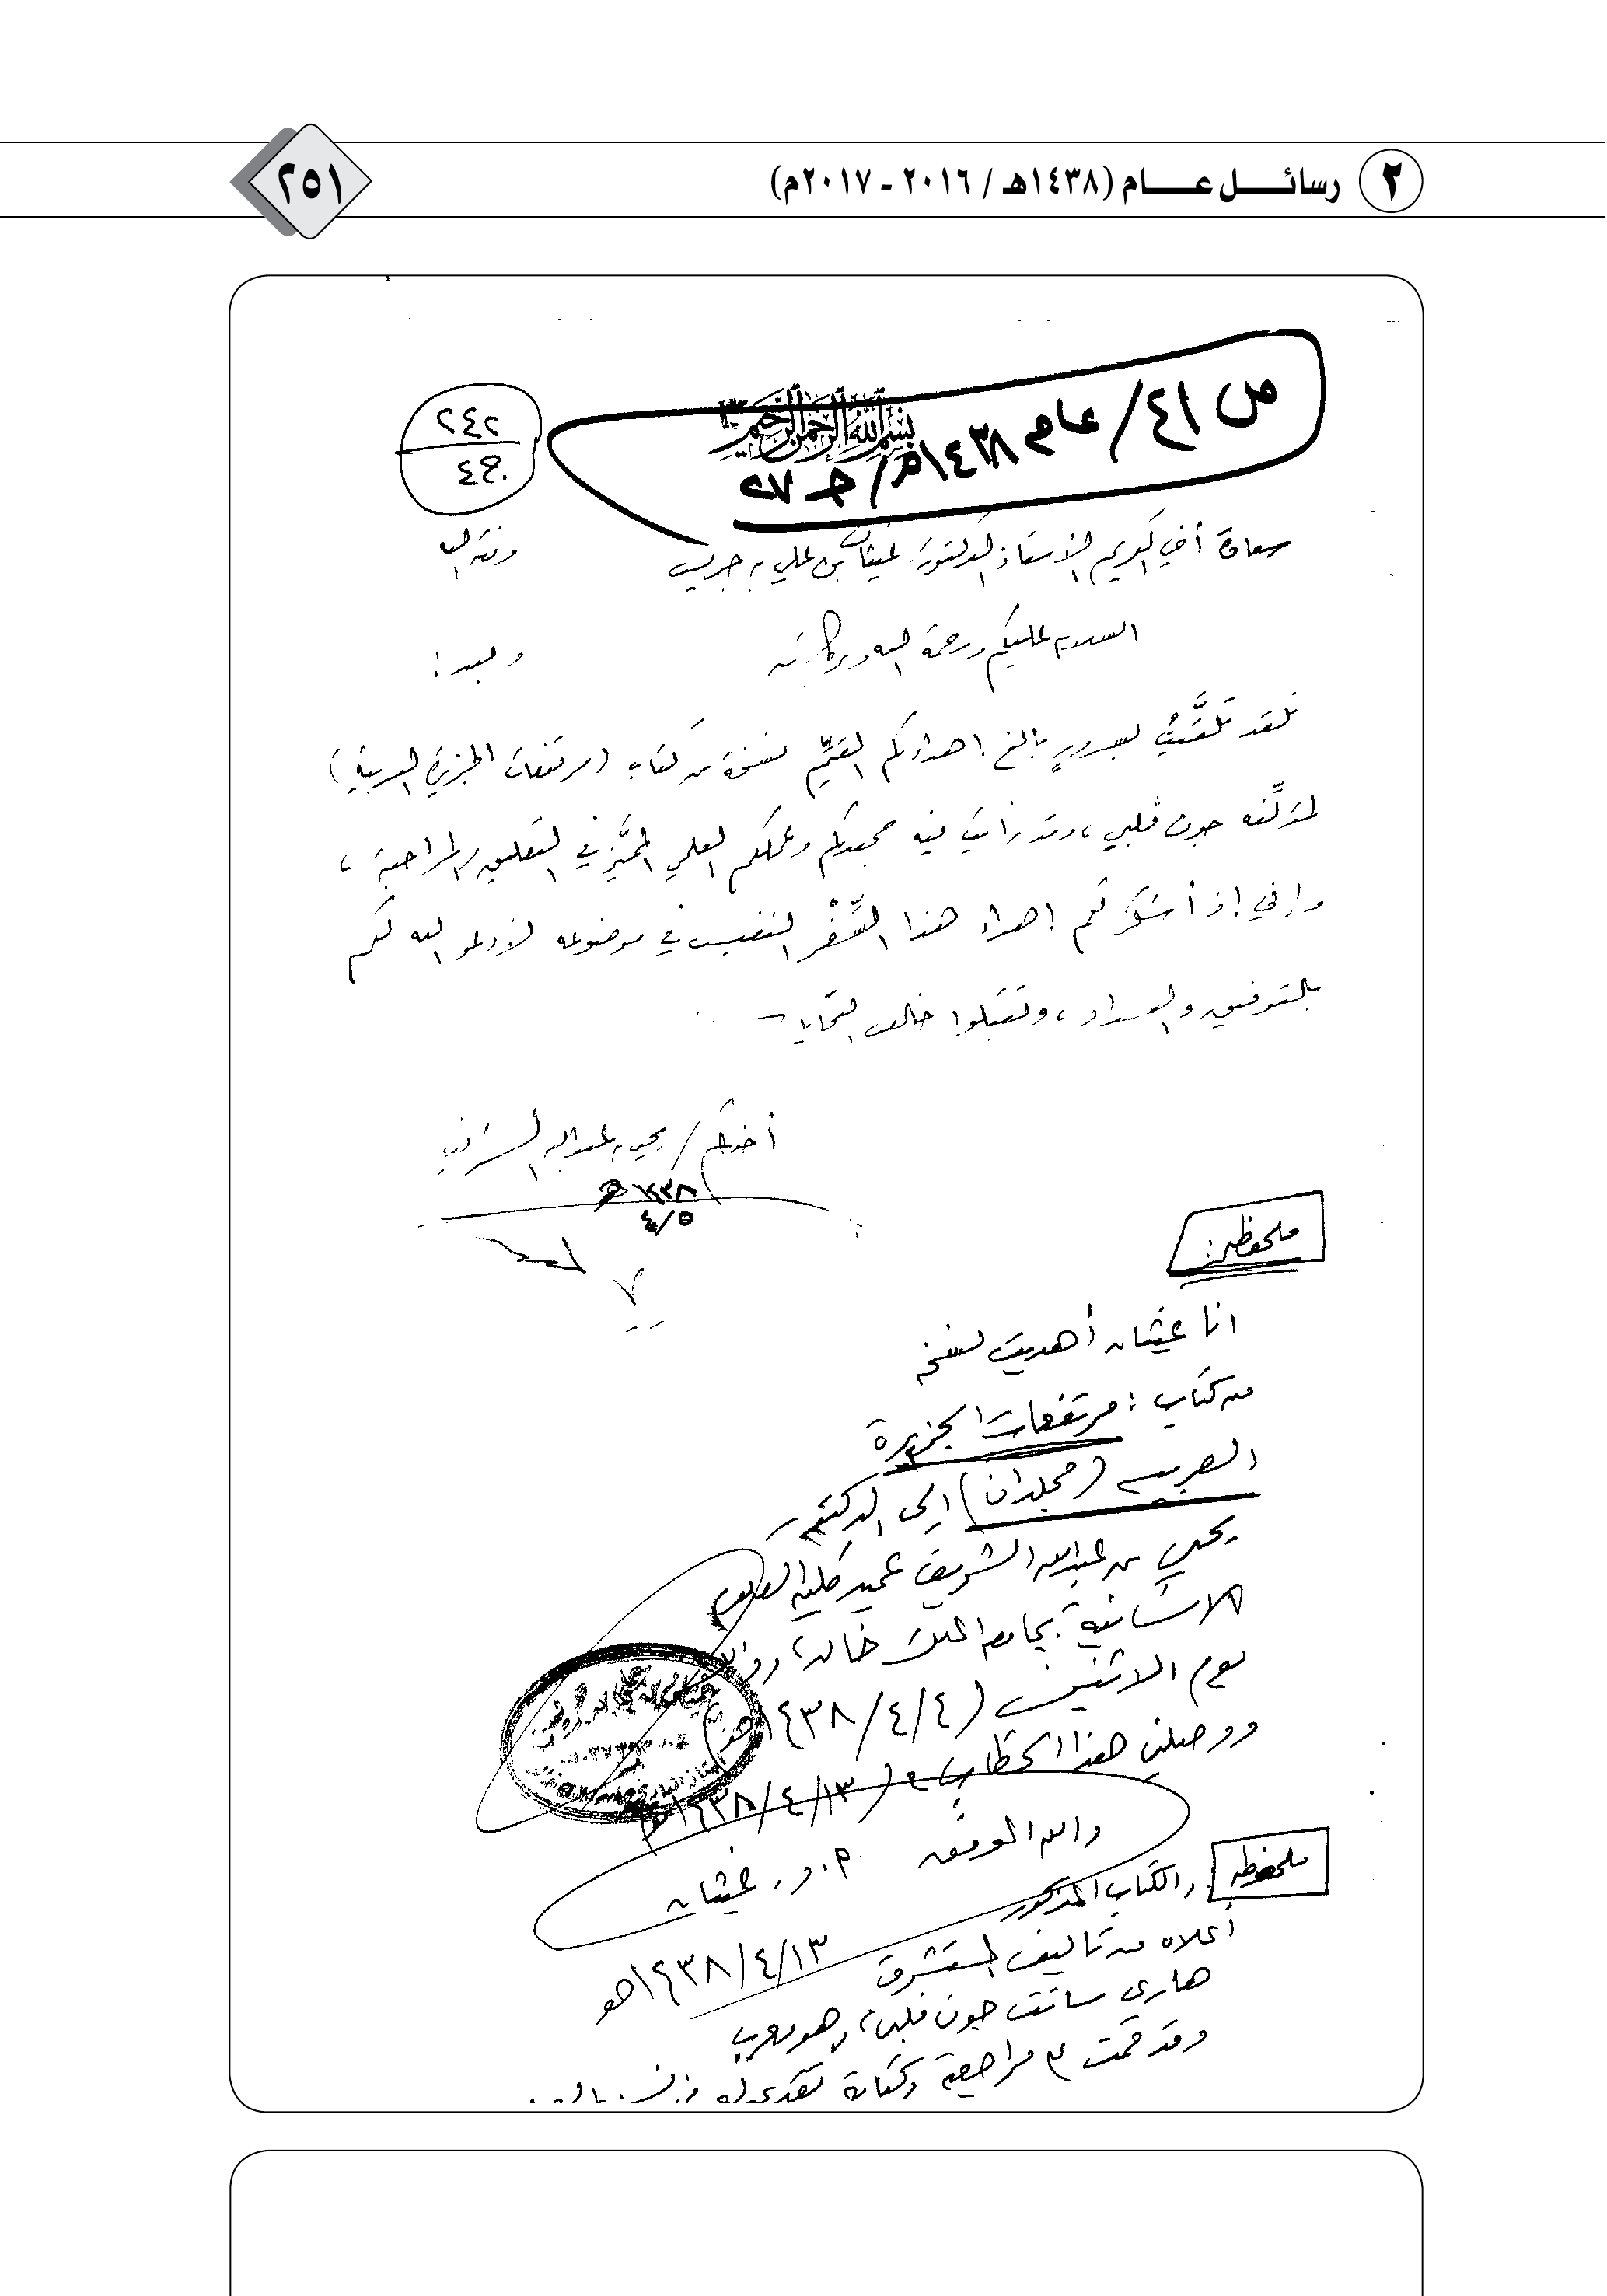 ٢ رسائــل عــام (١٤٣٨هـ / ٢٠١٦ - ٢٠١٧م)
٢٥١
ص ٤١/ عام ١٤٣٨هـ/ جـ ٢٧
بسم الله الرحمن الرحيم
٢٤٢
سعادة أخي الكريم الأستاذ الدكتور غيثان بن علي بن جريس وفقه الله
السلام عليكم ورحمة الله وبركاته وبعد:
فلقد تلقَّيتُ بسرورٍ بالغ إهداءكم القيِّم نسخة من كتاب (مرتفعات الجزيرة العربية)
لمؤلِّفه جون فلبي، وقد رأيت فيه جهدكم وعملكم العلمي المميَّز في التعليق والمراجعة،
وإني إذ أشكر لكم إهداء هذا السِّفْر النفيس في موضوعه لأدعو الله لكم
بالتوفيق والسداد، وتقبلوا خالص التحايا
أخوكم / يحيى بن عبدالله الشريف
١٤٣٨هـ
٤/٥
ملحوظة:
انا غيثان أهديت نسخة
من كتاب: مرتفعات الجزيرة
العربية (مجلدان) إلى الدكتور
يحيى بن عبدالله الشريف عميد كلية العلوم
الانسانية بجامعة الملك خالد،
يوم الاثنين (١٤٣٨/٤/٤هـ)
ووصلني هذا الخطاب في (١٤٣٨/٤/١٣هـ)
والله الموفق أ.د. غيثان
١٤٣٨/٤/١٣هـ
ملحوظة والكتاب المذكور
أعلاه من تأليف المستشرق
هاري سانت جون فلبي، وهو معرب
وقد قمت على مراجعة وكتابة تقديم له